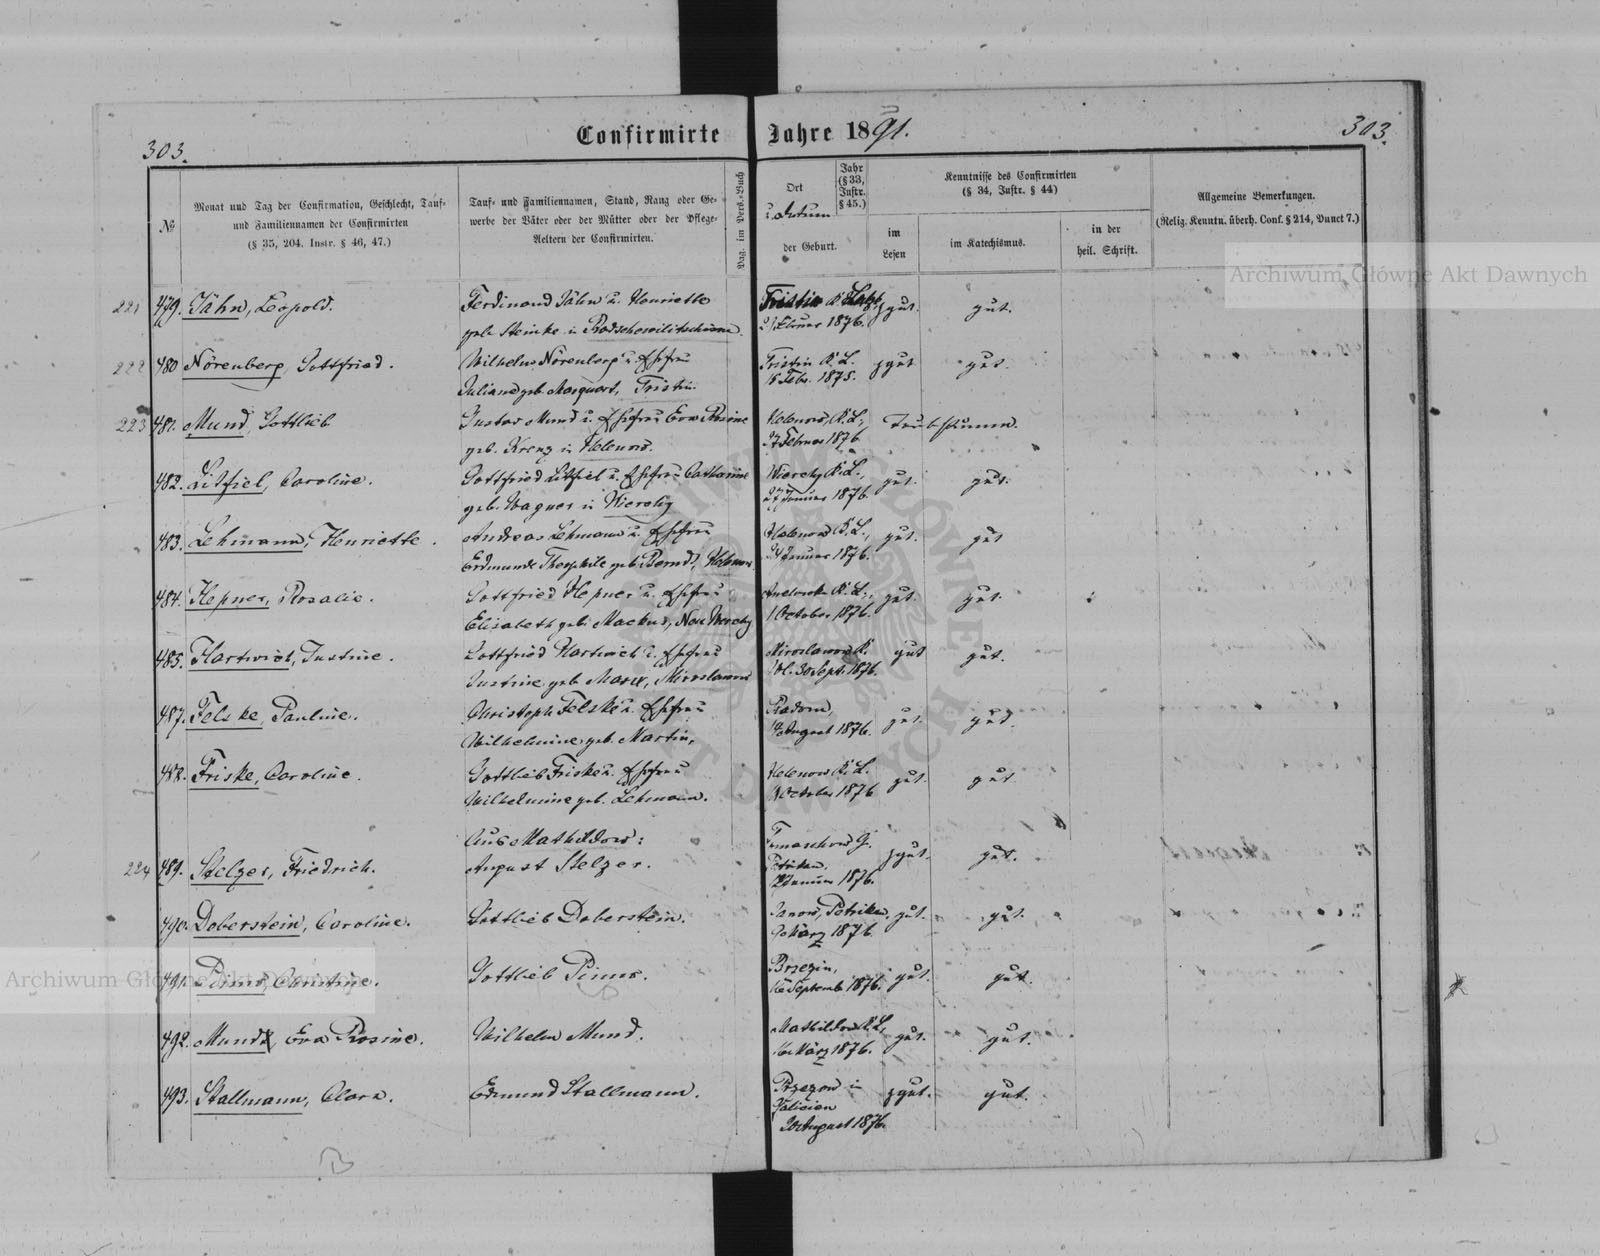 303.
Confirmirte
Jahre 1891.
303.
№
Monat und Tag der Confirmation, Geschlecht, Tauf-
und Familiennamen der Confirmirten
(§ 35, 204. Instr. § 46, 47.)
Tauf- und Familiennamen, Stand, Rang oder Ge-
werbe der Väter oder der Mütter oder der Pflege-
Aeltern der Confirmirten.
Pag. im Pers.-Buch
Ort
u. Datum
der Geburt.
Jahr
(§ 33,
Instr.
§ 45.)
Kenntnisse des Confirmirten
(§ 34, Instr. § 44)
im
Lesen
im Katechismus.
in der
heil. Schrift.
Allgemeine Bemerkungen.
(Relig. Kenntn. überh. Conf. § 214, Punct 7.)
Archiwum Główne Akt Dawnych
221 479. Jähn, Leopold.
Ferdinand Jähn u. Henriette
geb. Steinke in
1876.
gut.
gut.
222 480 Nörenberg, Gottfried.
Wilhelm Nörenberg u. Ehefrau
Juliane geb. Marquart, Tristin.
Tristin K. L.
Febr. 1875.
gut
gut.
223 481. Mund, Gottlieb
Gustav Mund u. Ehefrau Eva Rosine
geb. Krenz in Helenow.
Helenow, K. L.,
27 Februar 1876
Taubstumm.
482. Litfiel, Caroline.
Gottfried Litfiel u. Ehefrau Catharine
geb. Wagner in Wierchy
Wierchy K. L.,
27 Januar 1876.
gut.
gut.
483. Lehmann, Henriette.
Andreas Lehmann u. Ehefrau
Erdmunde Theophile geb. Berndt, Helenow
Helenow K. L.,
24 Januar 1876.
gut.
gut
484. Hepner, Rosalie.
Gottfried Hepner u. Ehefrau
Elisabeth geb. Mackus, Neu Wierchy
K. L.,
1 October 1876.
gut.
gut.
485. Hartwich, Justine.
Gottfried Hartwich u. Ehefrau
Justine geb. Marx, Miroslawow
Miroslawow K.
30 Sept. 1876.
gut
gut.
487. Felske, Pauline.
Christoph Felske u. Ehefrau
Wilhelmine geb. Martin,
Radom,
August 1876.
gut.
gut.
488. Friske, Caroline.
Gottlieb Friske u. Ehefrau
Wilhelmine geb. Lehmann.
Helenow K. L.
October 1876
gut.
gut
Aus Mathildow:
224 489. Stelzer, Friedrich.
August Stelzer.
Tomaschow G.
Petrikau.
Januar 1876.
gut.
gut.
490. Doberstein, Caroline.
Gottlieb Doberstein.
Janow, Petrikau.
März 1876.
gut.
gut.
491. Christine.
Gottlieb
Brzezin,
Septemb 1876.
gut.
gut.
Archiwum Główne Akt Dawnych
492. Mund, Eva Rosine.
Wilhelm Mund.
Mathildow K. L.,
März 1876.
gut.
gut.
493. Stallmann, Clara.
Edmund Stallmann.
in
Galicien
20 August 1876.
gut.
gut.